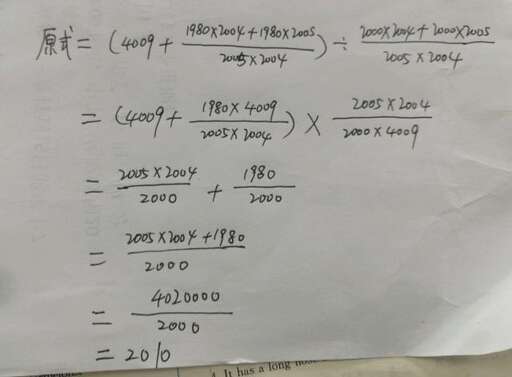 原式 = (4009 + (1980×2004+1980×2005)/(2005×2004)) ÷ (2000×2004+2000×2005)/(2005×2004)
= (4009 + (1980×4009)/(2005×2004)) × (2005×2004)/(2000×4009)
= (2005×2004)/2000 + 1980/2000
= (2005×2004+1980)/2000
= 4020000/2000
= 2010
4. It has a long